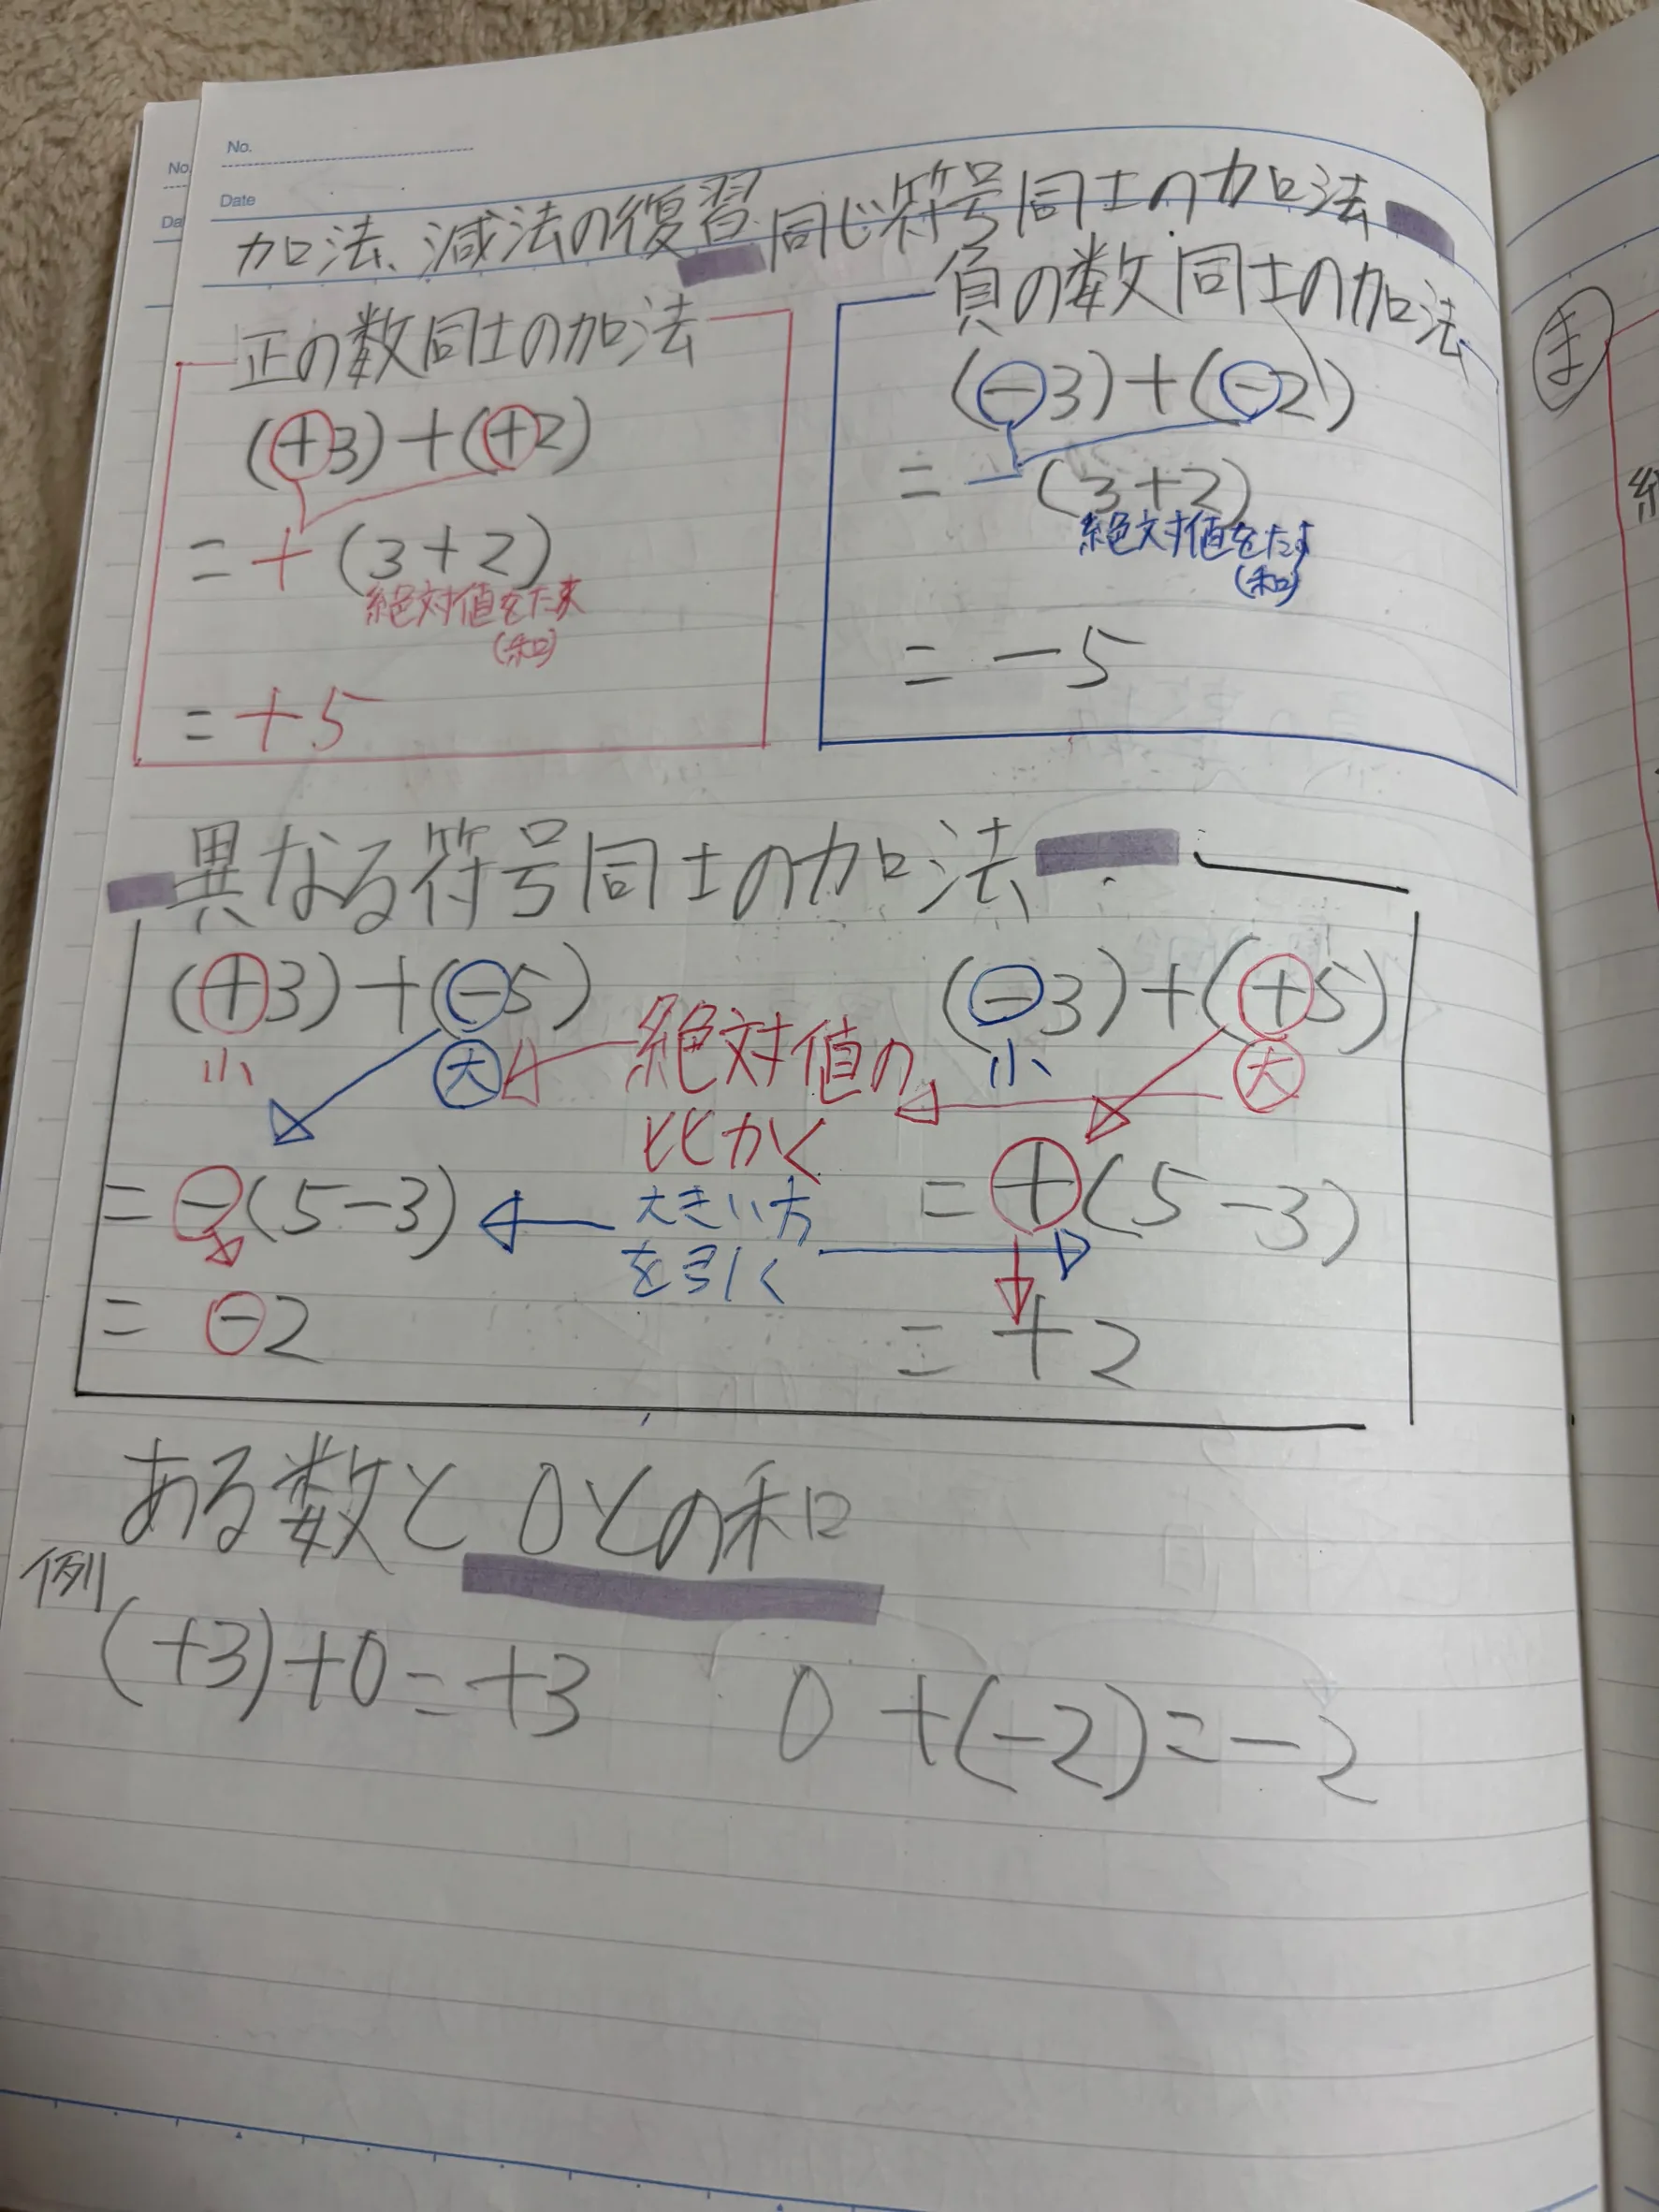 No.
Date
加法、減法の復習 同じ符号同士の加法
正の数同士の加法
(+3)+(+2)
=+(3+2)
絶対値をたす
(和)
=+5
負の数同士の加法
(-3)+(-2)
=-(3+2)
絶対値をたす
(和)
=-5
異なる符号同士の加法
(+3)+(-5)
小 大
=-(5-3)
=-2
絶対値の
比かく
大きい方
を引く
(-3)+(+5)
小 大
=+(5-3)
=+2
ある数と0との和
例
(+3)+0=+3 0+(-2)=-2
No.
Da
ま